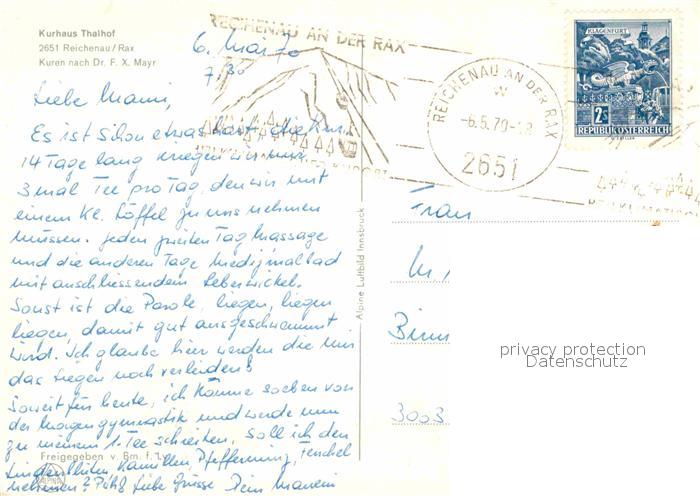 Kurhaus Thalhof
2651 Reichenau / Rax
Kuren nach Dr. F. X. Mayr
REICHENAU AN DER RAX
6. Mai 70
7,30
Liebe Mami,
Es ist schon etwas hart, die Kur.
14 Tage lang kriegen wir nur
3 mal Tee pro Tag, den wir mit
einem kl. Löffel zu uns nehmen
müssen. Jeden zweiten Tag Massage
und die anderen Tage Medizinalbad
mit anschliessendem Leberwickel.
Sonst ist die Parole, liegen, liegen
liegen, damit gut ausgeschwemmt
wird. Ich glaube hier werden die mir
das Liegen noch verleiden!
Soweit für heute, ich komme soeben von
der Morgengymnastik und werde nun
zu meinem 1. Tee schreiten. Soll ich den
Lindenblüten, Kamillen, Pfefferminz, Fenchel
nehmen? Liebe Grüsse Dein
Freigegeben v. Bm. f. Lv.
ALPINE
Alpine Luftbild Innsbruck
REICHENAU AN DER RAX
-6.5.70-
2651
KLAGENFURT
2S
REPUBLIK ÖSTERREICH
Frau
M
Binn
3003
privacy protection
Datenschutz